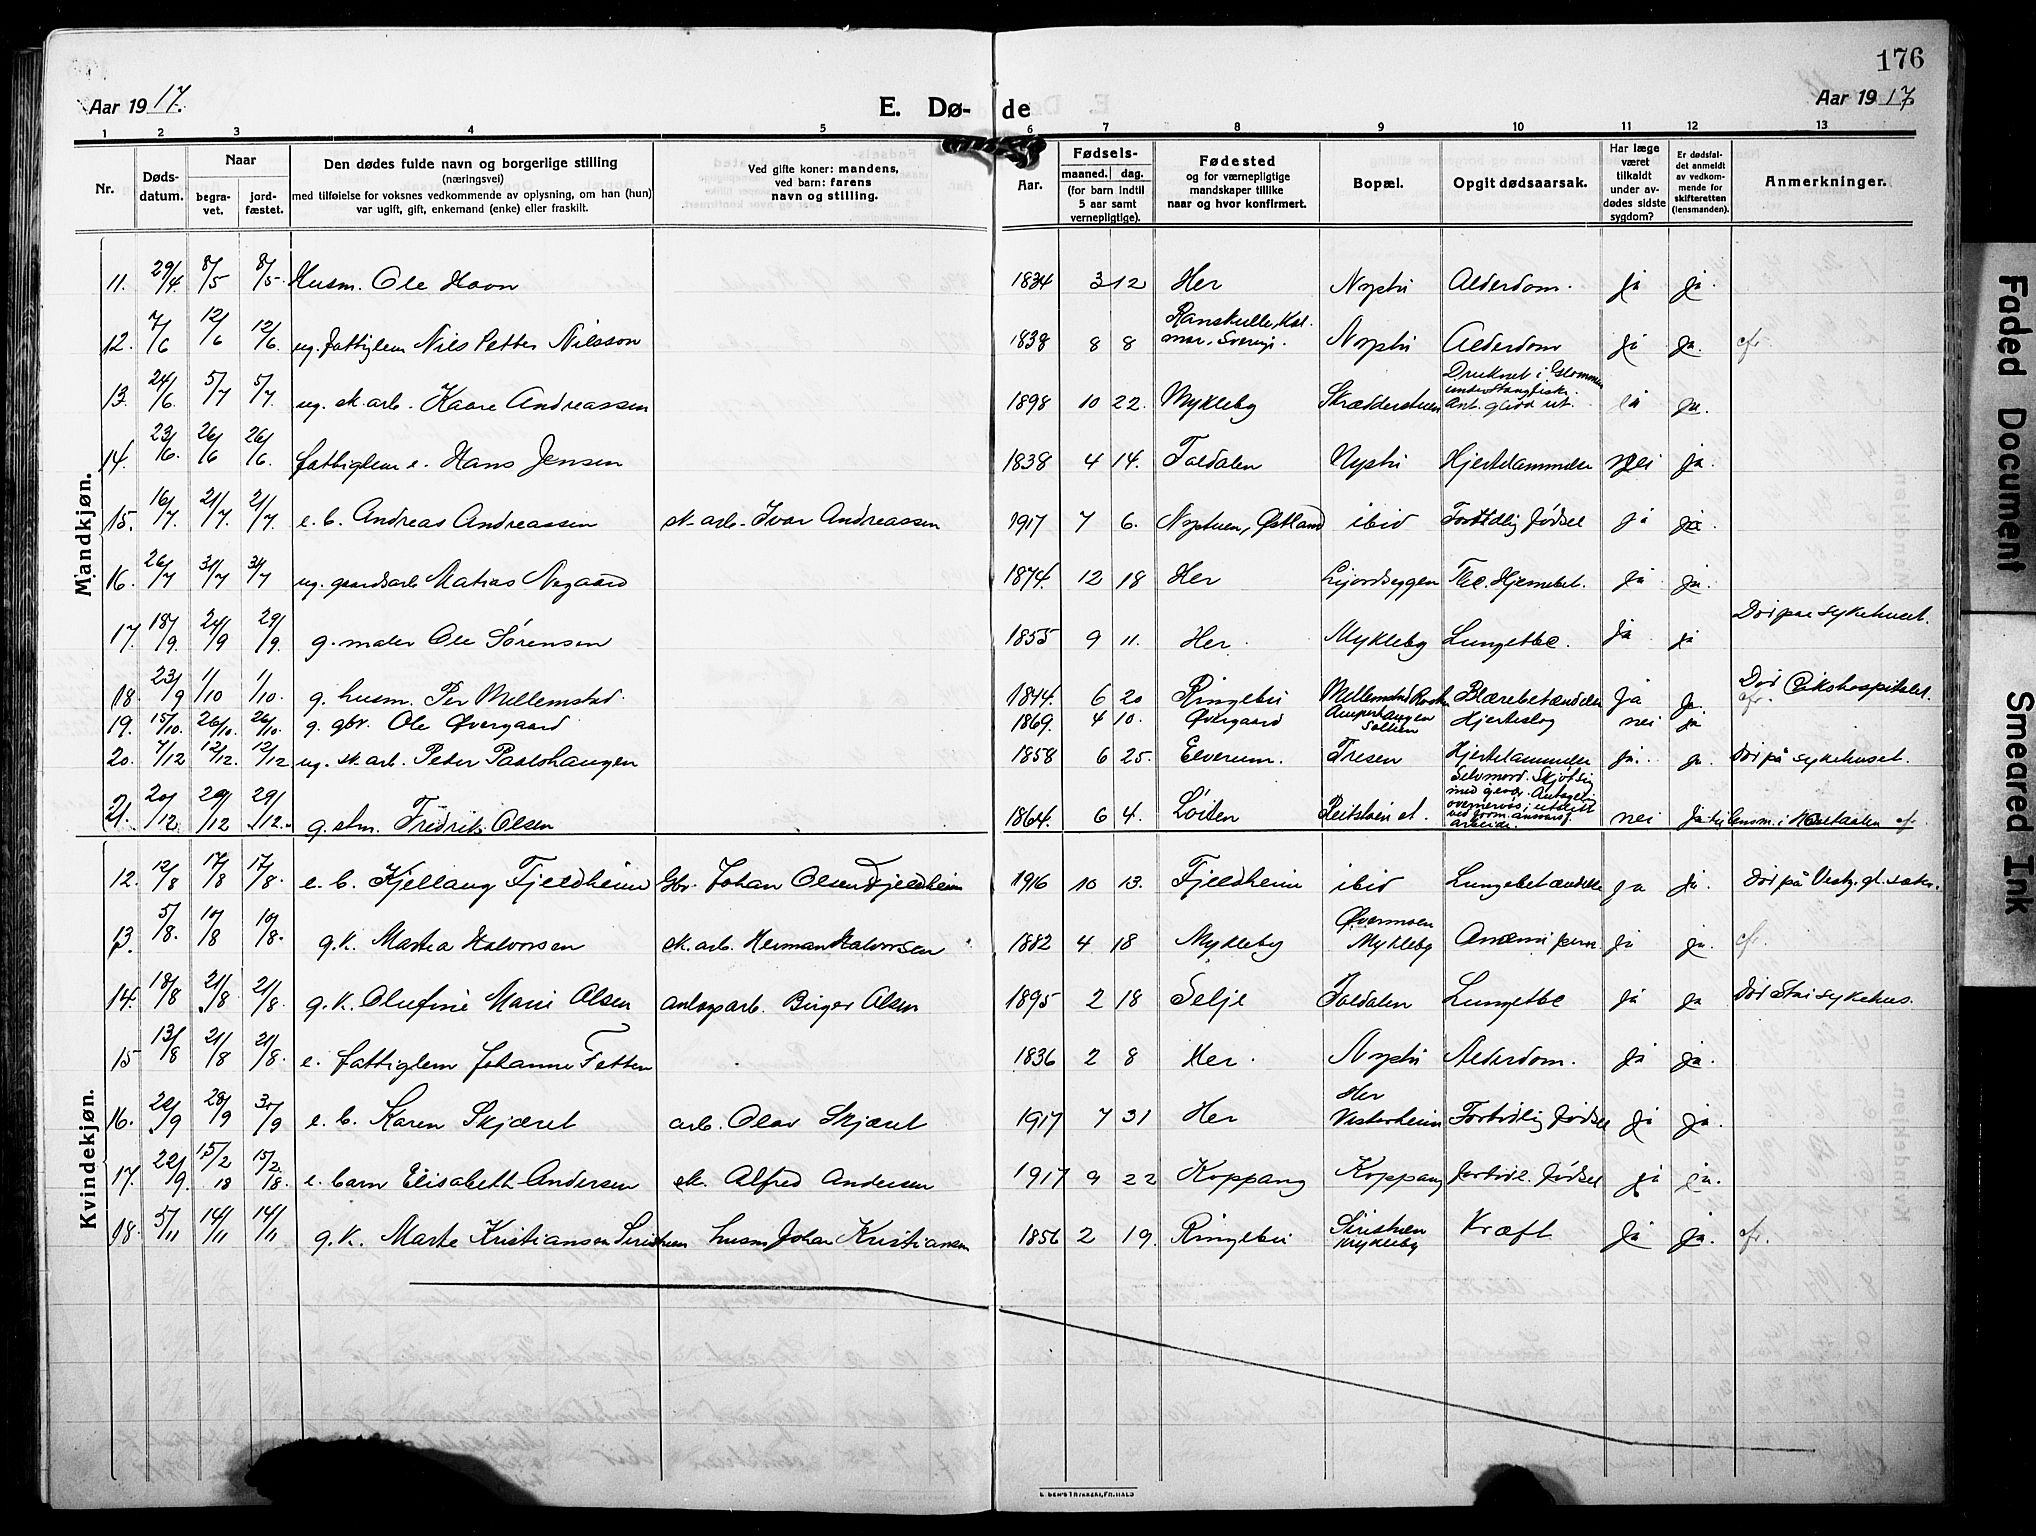 176
Aar 1917.
E. Dø-
de
Aar 1917
1 2 3 4 5 6 7 8 9 10 11 12 13
Nr.
Døds-
datum.
Naar
begra-
vet.
jord-
fæstet.
Den dødes fulde navn og borgerlige stilling
(næringsvei)
med tilføielse for voksnes vedkommende av oplysning, om han (hun)
var ugift, gift, enkemand (enke) eller fraskilt.
Ved gifte koner: mandens,
ved barn: farens
navn og stilling.
Aar.
Fødsels-
maaned. dag.
(for barn indtil
5 aar samt
vernepligtige).
Fødested
og for værnepligtige
mandskaper tillike
naar og hvor konfirmert.
Bopæl.
Opgit dødsaarsak.
Har læge
været
tilkaldt
under av-
dødes sidste
sygdom?
Er dødsfal-
det anmeldt
av vedkom-
mende for
skifteretten
(lensmanden).
Anmerkninger.
Mandkjøn.
11. 29/4. 8/5 8/5. Husm. Ole Havn 1834 3 12 Her Nystu Alderdom. ja ja.
12. 7/6 12/6 12/6. ug. fattiglem Nils Petter Nilsson 1838 8 8 Nystu Alderdom ja ja. cfr.
13. 24/6. 5/7 5/7. ug. sk. arb. Kaare Andreassen 1898 10 22. Mykleby Skrædderstuen Druknet i Glommen Ant. glidd ut. ja.
14. 23/6. 26/6 26/6. fattiglem e. Hans Jensen 1838 4 14. Nystu Hjertelammelse nei ja.
15. 16/7. 21/7. 21/7 e. b. Andreas Andreassen sk. arb. Ivar Andreassen 1917 7 6. Nystuen, Østland ibid Fortidlig fødsel ja ja.
16. 26/7 31/7 31/7 ug. gaardsarb. Matias Nygaard 1874. 12 18 Her Tbc. Hjernebet. ja ja.
17. 18/9. 24/9 29/9. g. maler Ole Sørensen 1855 9 11. Her. Mykleby Lungetbc. ja ja Død paa sykehuset.
18. 23/9 1/10 1/10. g. husm. Per Mellemstad. 1844. 6 20 Ringebu Blærebetændelse ja ja. cfr.
19. 15/10. 26/10. 26/10. g. gbr. Ole Øvergaard 1869. 4 10. Øvergaard Hjerteslag nei ja
20. 7/12 12/12. 12/12. ug. sk. arb. Peder Paalshaugen 1858 6 25. Elverum. Tresen Hjertelammelse ja. ja. Død på sykehuset.
21. 20/12 29/12 29/12. g. stm. Fredrik Olsen 1864. 6 4. Løiten Selvmord. Skjøt sig med gevær. nei ja
Kvindekjøn.
12. 12/8 17/8 17/8. e. b. Kjellaug Fjeldheim Gbr. Johan Olsen Fjeldheim 1916 10 13. Fjeldheim ibid Lungebetændelse ja ja.
13. 5/8. 10/8 10/8. g. k. Martea Halvorsen sk. arb. Herman Halvorsen 1882 4 18 Mykleby Øvermoen Mykleby ja ja. cfr.
14. 18/8 21/8 21/8. g. k. Olufine Marie Olsen anlegsarb. Birger Olsen 1895 2 18 Selje Lungetbc ja ja Død Stai sykehus.
15 13/8 21/8 21/8. e. fattiglem Johanne Fetten 1836 2 8 Her. Nystu Alderdom. ja ja.
16. 22/9 28/9 30/9 e. b. Karen Skjæret arb. Olav Skjæret 1917 7 31 Her Her Vesterheim Fortidlig fødsel ja ja.
17. 22/9. 15/2 18 15/2. 18. e. barn Elisabeth Andersen sk. Alfred Andersen 1917 9 22 Koppang Koppang fortidl. fødsel ja ja.
18. 5/11 14/11 14/11 g. k. Marte Kristiansen husm. Johan Kristiansen 1856 2 19. Ringebu Mykleby Kræft ja ja. cfr.
Faded Document
Smeared Ink